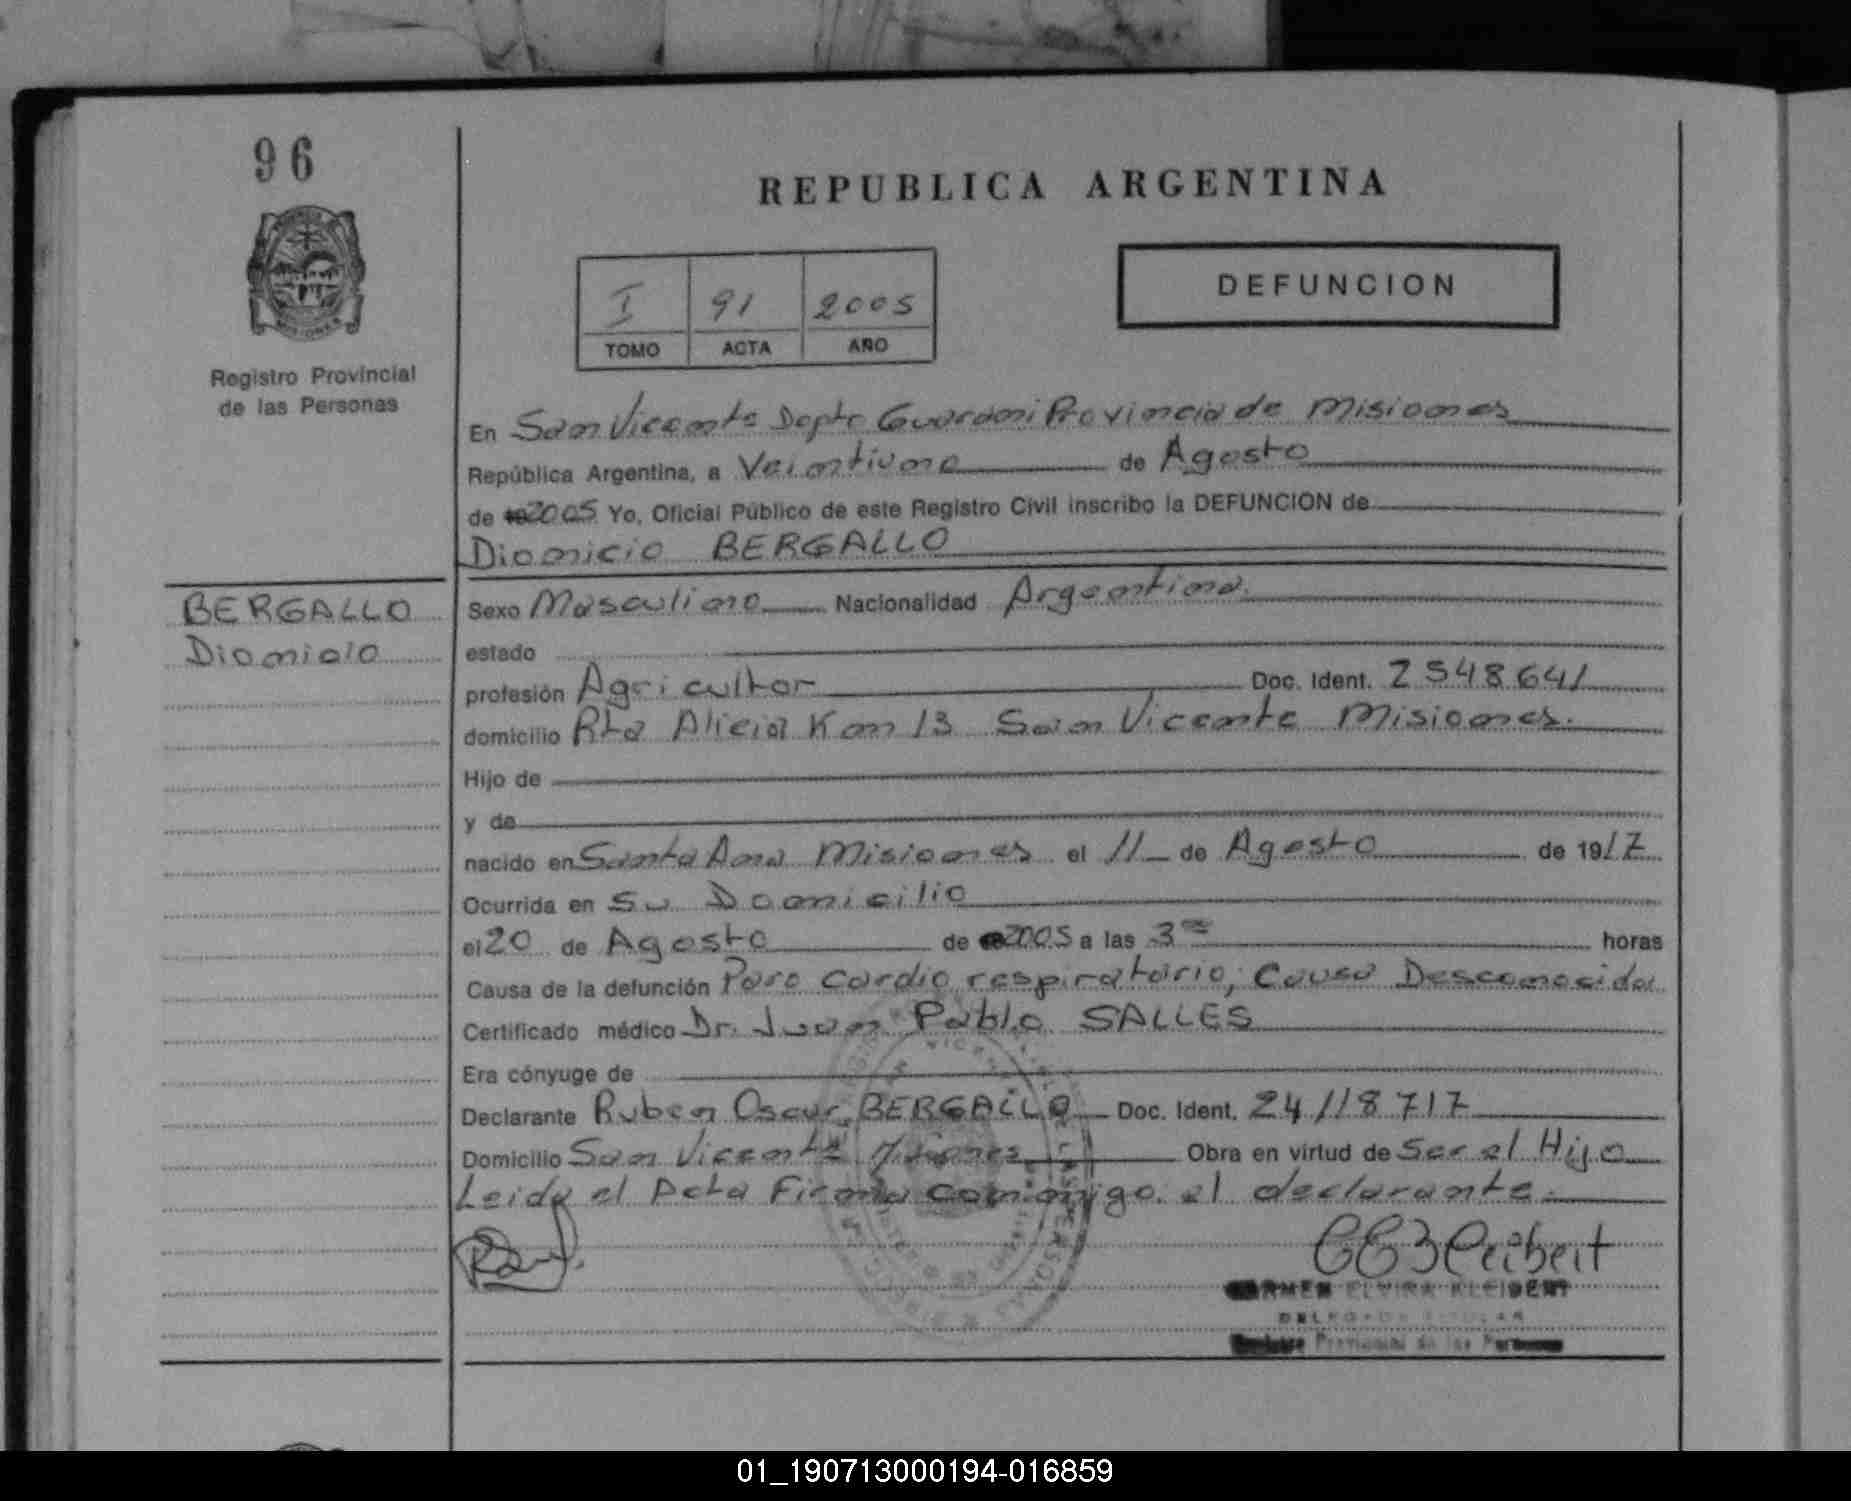 96
REPUBLICA ARGENTINA
I 91 2005
TOMO ACTA AÑO
DEFUNCION
Registro Provincial
de las Personas
En San Vicente Depto Guarani Provincia de Misiones
República Argentina, a Veintiuno de Agosto
de 2005 Yo, Oficial Público de este Registro Civil inscribo la DEFUNCION de
Dionicio BERGALLO
BERGALLO
Dionicio
Sexo Masculino Nacionalidad Argentina.
estado
profesión Agricultor Doc. Ident. 2548641
domicilio Rta Alicia Km 13 San Vicente Misiones.
Hijo de
y de
nacido en Santa Ana Misiones el 11 de Agosto de 1917
Ocurrida en Su Domicilio
el 20 de Agosto de 2005 a las 3 horas
Causa de la defunción Paro Cardio respiratorio, Causa Desconocida
Certificado médico Dr. Juan Pablo SALLES
Era cónyuge de
Declarante Ruben Oscar BERGALLO Doc. Ident. 24118717
Domicilio San Vicente Misiones Obra en virtud de Ser el Hijo
Leida el Acta Firma conmigo el declarante.
CARMEN ELVIRA KLEIBERT
Provincial de las Personas
01_190713000194-016859